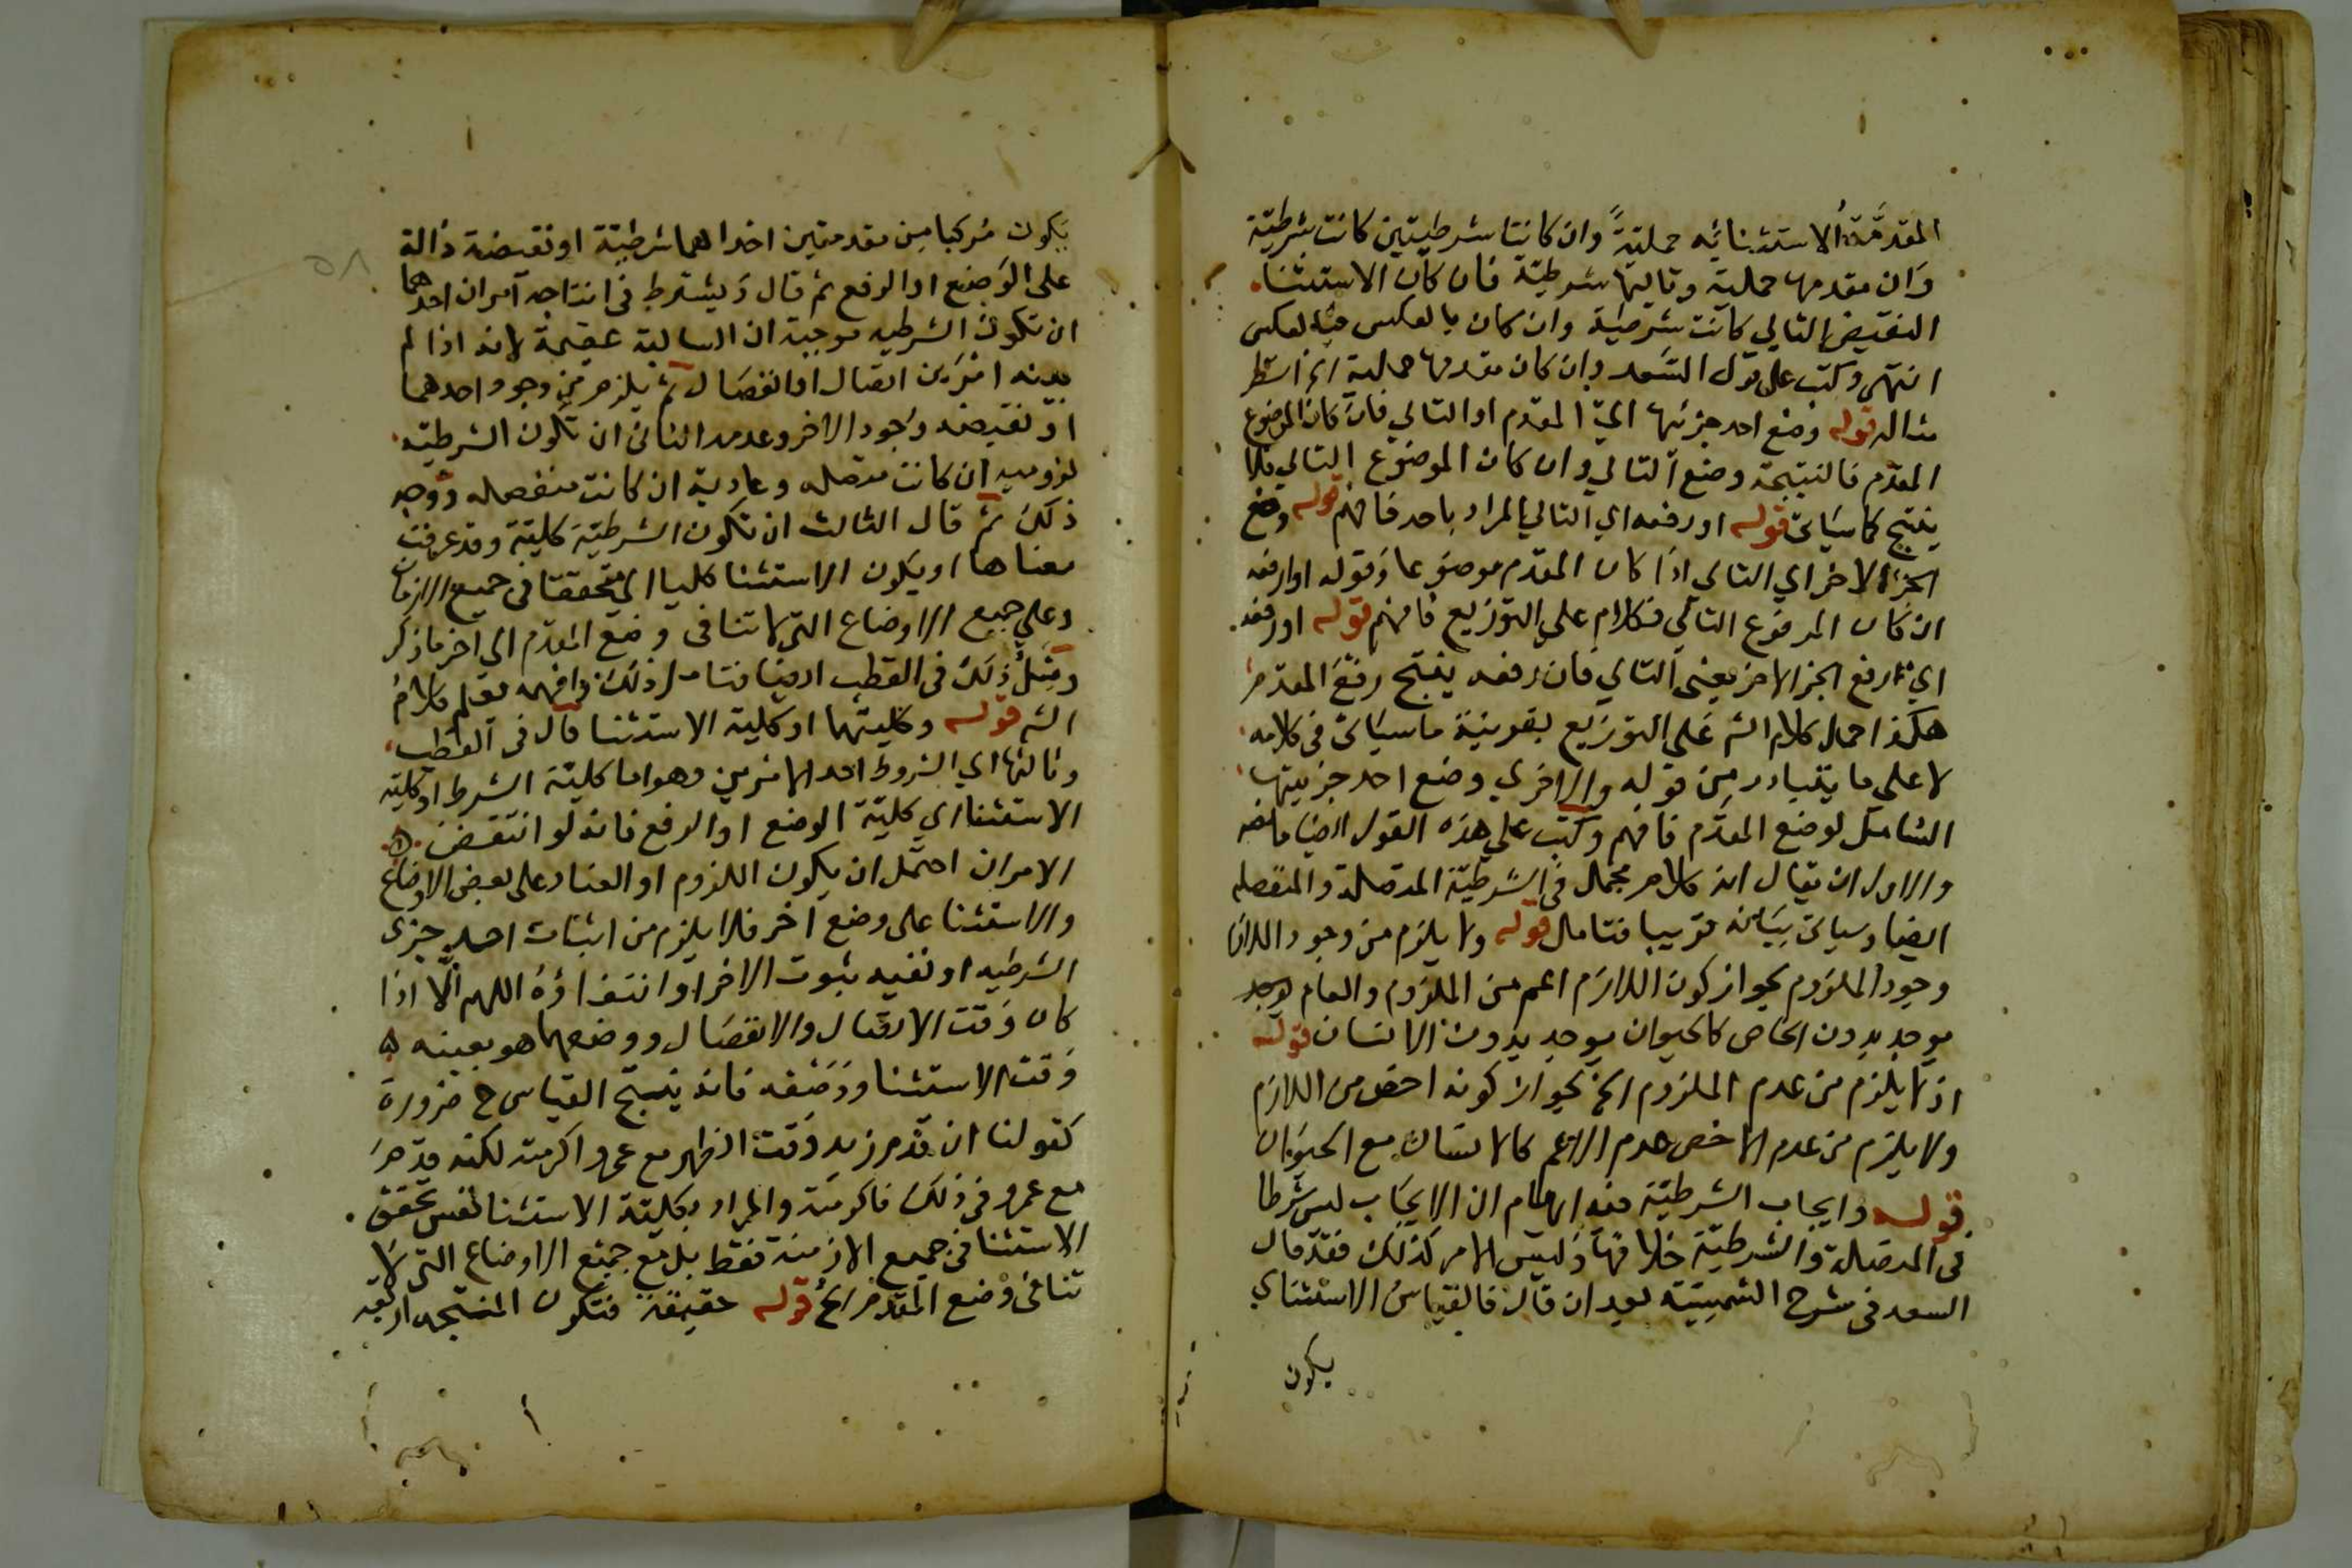 المقدمة الاستثنائيه حملية وان كانتا شرطيتين كانت شرطية
وان مقدمها حملية وتاليها شرطية فان كان الاستثنا
النقيض التالي كانت شرطية وان كان بالعكس فبالعكس
انتهى وكتب على قول السعد وان كان مقدمها حملية الخ انظر
مثاله قوله وضع احد جزئيها اي المقدم او التالي فان كان الموضوع
المقدم فالنتيجة وضع التالي وان كان الموضوع التالي فلا
ينتج كما سياتي قوله او رفعه اي التالي المراد باحد فافهم قوله وضع
الجزء الاخر اي التالي اذا كان المقدم موضوعا وقوله او رفعه
ان كان المرفوع التالي فكلام على التوزيع فافهم قوله او رفعه
اي رفع الجز الاخر يعني التالي فان رفعه ينتج رفع المقدم
هكذا احمل كلام الش على التوزيع بقرينة ما سياتي في كلامه
لا على ما يتبادر من قوله والاخرى وضع احد جزييها
الشامل لوضع المقدم فافهم وكتب على هذه القول ايضا ما نصه
والاول ان يقال انه كلام مجمل في الشرطية المتصلة والمنفصله
ايضا وسياتي بيانه قريبا فتامل قوله ولا يلزم من وجود اللازم
وجود الملزوم لجواز كون اللازم اعم من الملزوم والعام يوجد
يوجد بدون الخاص كالحيوان يوجد بدون الانسان قوله
اذ لا يلزم من عدم الملزوم الخ لجواز كونه اخص من اللازم
ولا يلزم من عدم الاخص عدم الاعم كالانسان مع الحيوان
قوله وايجاب الشرطية فيه ايهام ان الايجاب ليس شرطا
في المتصلة والشرطية خلافها وليس الامر كذلك فقد قال
السعد في شرح الشمسية بعد ان قال فالقياس الاستثناي
يكون
يكون مركبا من مقدمتين احداهما شرطية او نقيضة دالة
على الوضع او الرفع ثم قال ويشترط في انتاجه امران احدهما
ان تكون الشرطيه موجبة ان السالبة عقيمة لانه اذا لم
امرين اتصال او انفصال لم يلزم من وجود احدهما
او نقيضه وجود الاخر وعدمه الثاني ان تكون الشرطيه
لزوميه ان كانت متصله وعنادية ان كانت منفصله ووجه
ذلك ثم قال الثالث ان تكون الشرطية كلية وقد عرفت
معناها او يكون الاستثنا كليا اي متحققا في جميع الازمان
وعلى جميع الاوضاع التي لا تنافى وضع المقدم الى اخر ما ذكر
ومثل ذلك في القطب ايضا فتامل ذلك وافهمه تعلم كلام
الش قوله وكليتها او كلية الاستثنا قال في القطب
وثالثها اي الشروط احد الامرين وهو اما كلية الشرط او كلية
الاستثنا اي كلية الوضع او الرفع فانه لو انتقض
الامران احتمل ان يكون اللزوم او العناد على بعض الاوضاع
والاستثنا على وضع اخر فلا يلزم من اثبات احد جزي
الشرطيه او نفيه ثبوت الاخر او انتفاؤه اللهم الا اذا
كان وقت الاتصال والانفصال ووضعهما هو بعينه
وقت الاستثنا ووضعه فانه ينتج القياس ح ضرورة
كقولنا ان قدم زيد وقت الظهر مع عمرو اكرمته لكنه قدم
مع عمرو في ذلك فاكرمته والمراد بكلية الاستثنا ليس تحقق
الاستثنا في جميع الازمنة فقط بل مع جميع الاوضاع التي لا
تنافى وضع المقدم الخ قوله حقيقة فتكون المنتجه اربعه